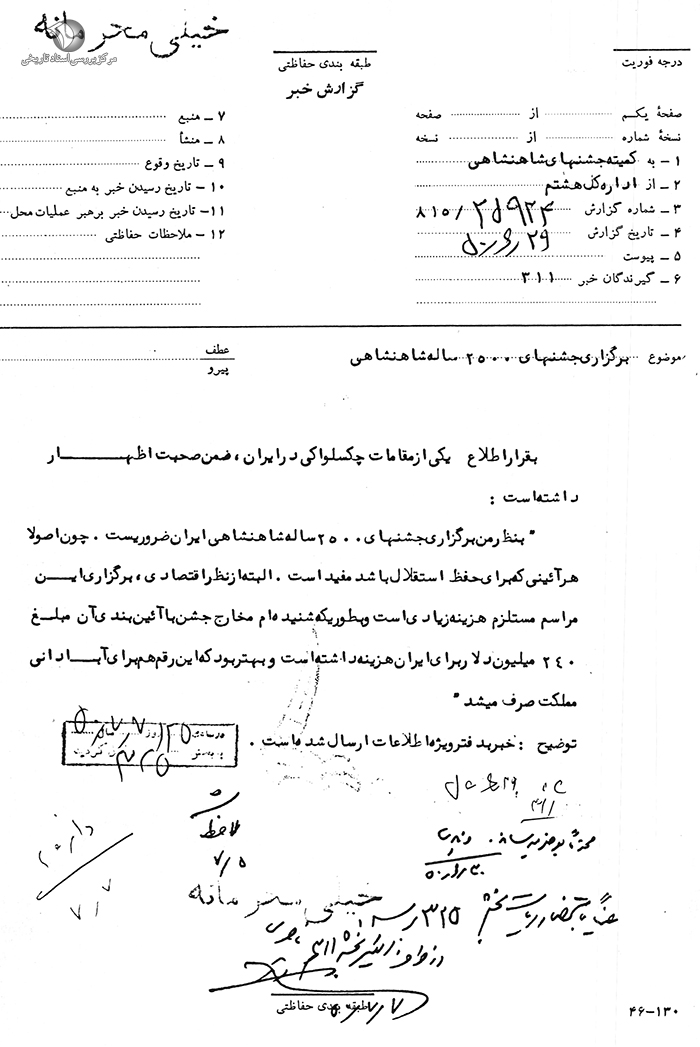 خیلی محرمانه
مرکز بررسی اسناد تاریخی
درجه فوریت
طبقه بندی حفاظتی
گزارش خبر
صفحهٔ یکم از صفحه
نسخهٔ شماره از نسخه
۱ ـ به کمیته جشنهای شاهنشاهی
۲ ـ از اداره کل هشتم
۳ ـ شماره گزارش ۸۱۵/۲۵۹۲۴
۴ ـ تاریخ گزارش ۲۹
۵ ـ پیوست
۶ ـ گیرندگان خبر ۳۱۱
۷ ـ منبع
۸ ـ منشأ
۹ ـ تاریخ وقوع
۱۰ ـ تاریخ رسیدن خبر به منبع
۱۱ ـ تاریخ رسیدن خبر برهبر عملیات محل
۱۲ ـ ملاحظات حفاظتی
موضوع برگزاری جشنهای ۲۵۰۰ ساله شاهنشاهی
عطف
پیرو
بقرار اطلاع یکی از مقامات چکسلواکی در ایران ، ضمن صحبت اظهار
داشته است :
" بنظر من برگزاری جشنهای ۲۵۰۰ ساله شاهنشاهی ایران ضروریست . چون اصولا
هر آئینی که برای حفظ استقلال باشد مفید است . البته از نظر اقتصادی ، برگزاری این
مراسم مستلزم هزینه زیادی است و بطوریکه شنیده ام مخارج جشن با آئین بندی آن مبلغ
۲۴۰ میلیون دلار برای ایران هزینه داشته است و بهتر بود که این رقم هم برای آبادانی
مملکت صرف میشد "
توضیح : خبر به دفتر ویژه اطلاعات ارسال شده است .
ملاحظه شد
۷/۵
۷/۷
خیلی محرمانه
طبقه بندی حفاظتی
۴۶-۱۳۰